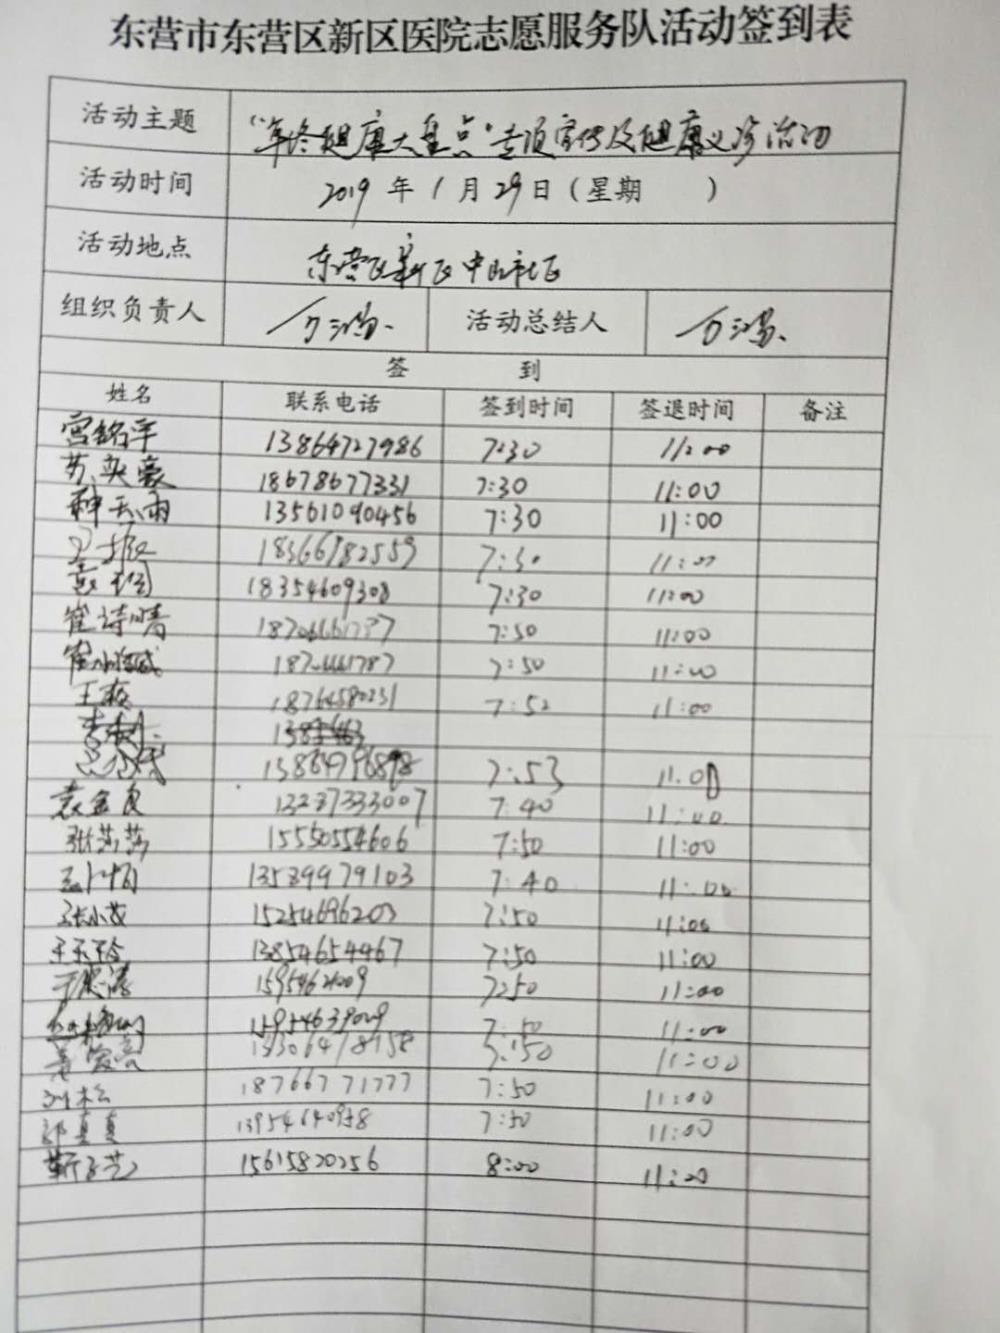 东营市东营区新区医院志愿服务队活动签到表
活动主题 “年终健康大盘点”专项宣传及健康义诊活动
活动时间 2019 年 1 月 29 日（星期 ）
活动地点 东营区新区中山社区
组织负责人 万鸿 活动总结人 万鸿
签 到
姓名 联系电话 签到时间 签退时间 备注
宫铭平 13864727986 7:30 11:00
苏奕豪 18678677331 7:30 11:00
种天雨 13561090456 7:30 11:00
18366782559 7:30 11:00
18354609308 7:30 11:00
崔诗晴 7:50 11:00
崔 7:50 11:00
王 18764580231 7:52 11:00
7:53 11:00
袁金良 13287333007 7:40 11:00
张莎莎 15550554606 7:50 11:00
13589979103 7:40 11:00
张小茂 15254696203 7:50 11:00
13854654467 7:50 11:00
7:50 11:00
15954639029 7:50 11:00
7:50 11:00
刘松 18766771777 7:50 11:00
邵真真 7:50 11:00
靳子艺 15615820256 8:00 11:00